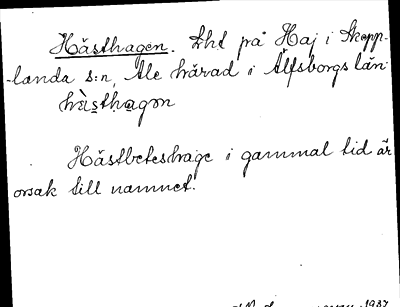 Hästhagen. Lht på Haj i Skepp-
-landa s:n, Ale härad i Älfsborgs län
hä̀sthagən
Hästbeteshage i gammal tid är
orsak till namnet.
1937